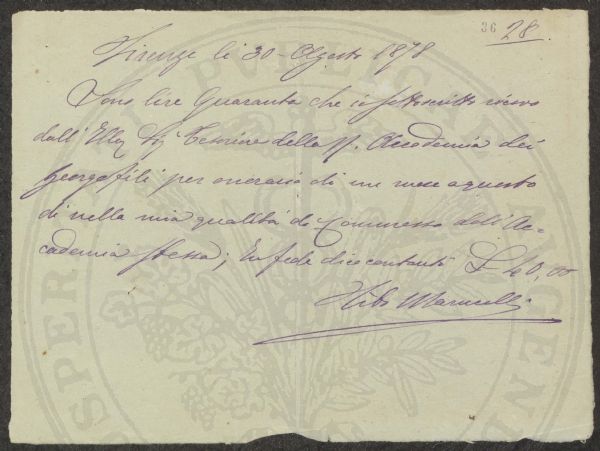 36 28.
Firenze li 30 Agosto 1878
Sono lire Quaranta che io sottoscritto ricevo
dall' Sig Tesoriere della R. Accademia dei
Georgofili per onorario di un mese a questo
dì nella mia qualità di Commesso dell'Ac-
cademia stessa; In fede dico contanti £ 40,00
Marucelli
PROSPERITATI PUBLICAE AUGENDAE